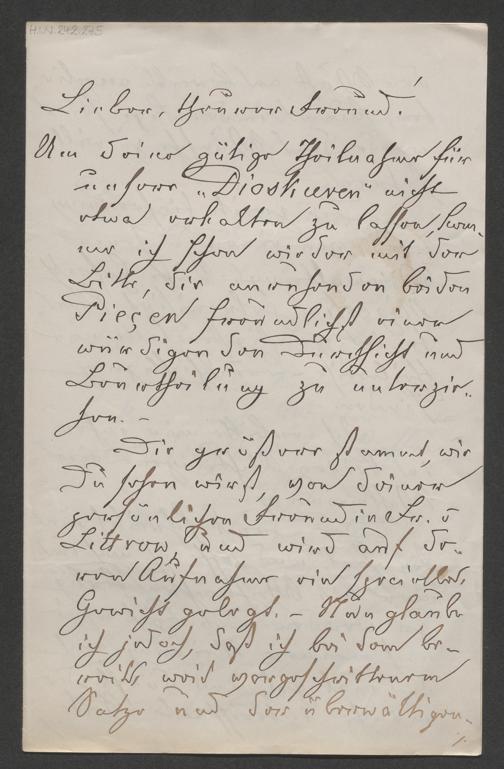 H.I.N. 242.245
Lieber, theurer Freund!
Um Deine gütige Theilnahme für
unsere „Dioskuren" nicht
etwa erkalten zu lassen, kom-
me ich schon wieder mit der
Bitte, die anruhenden beiden
Piècen freundlichst einer
würdigenden Durchsicht und
Beurtheilung zu unterzie-
hen. –
Die größere stammt, wie
Du sehen wirst, von Deiner
persönlichen Freundin Fr. v
Littrow, und wird auf de-
ren Aufnahme ein specielles
Gewicht gelegt. – Nun glaube
ich jedoch, daß ich bei dem be-
reits weit vorgeschrittenem
Satze und der überwältigen-